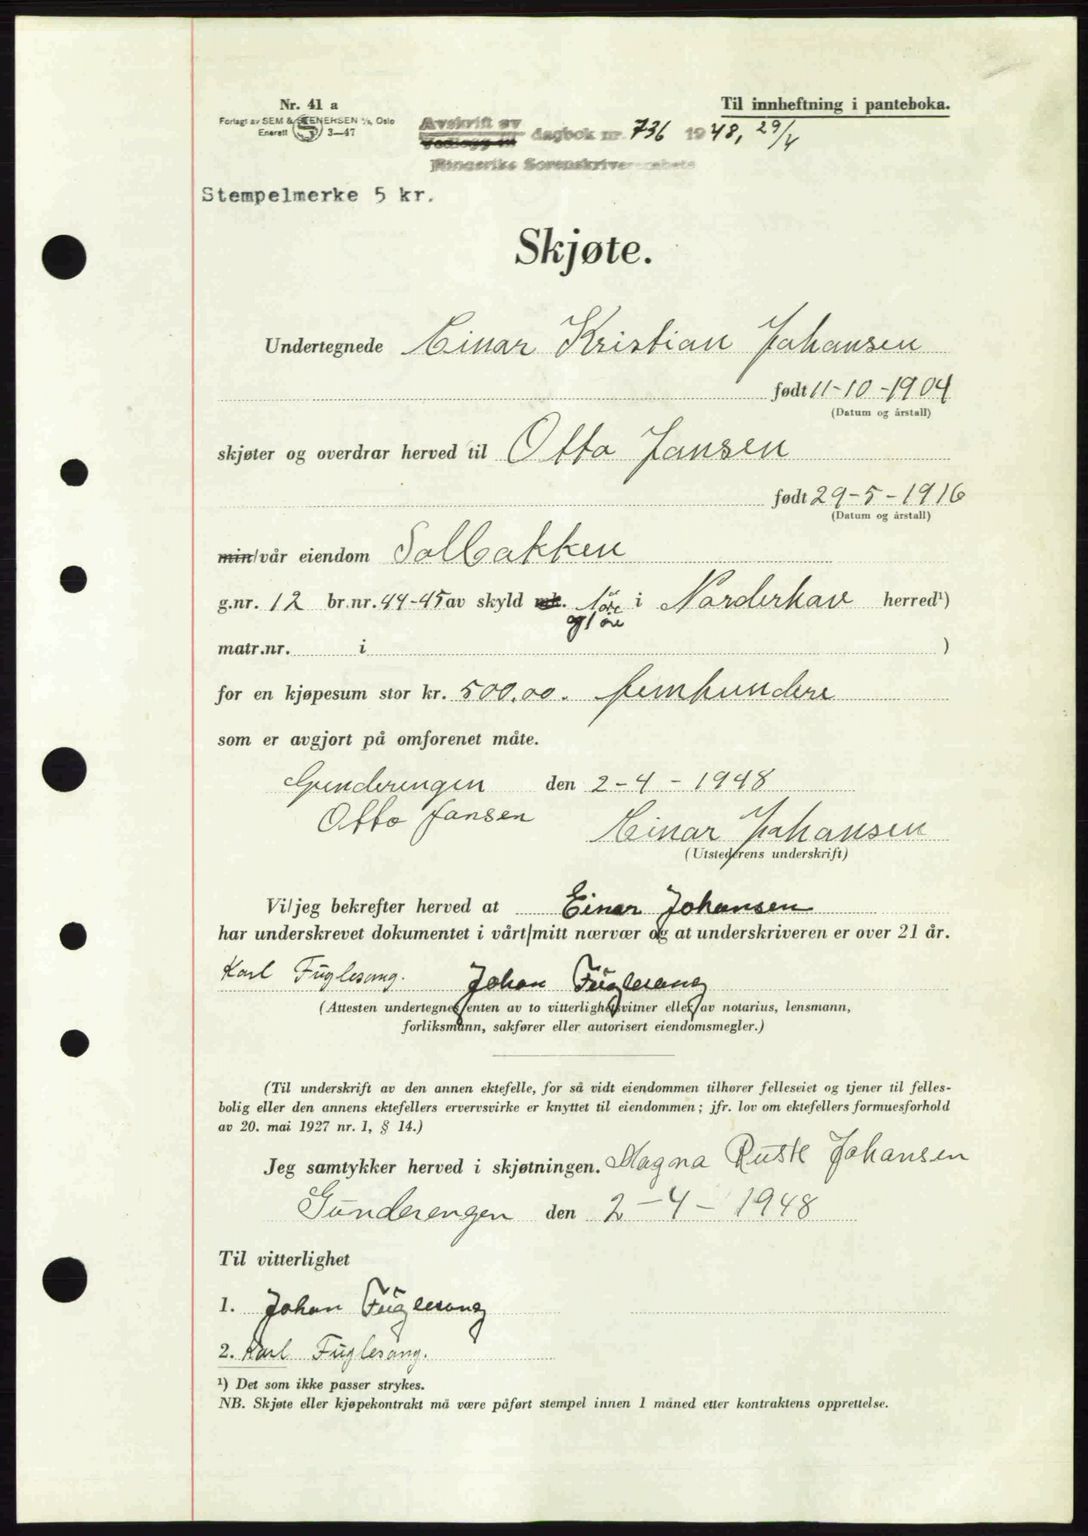 Nr. 41 a
Forlagt av SEM & STENERSEN A/S, Oslo
Enerett S 3—47
Til innheftning i panteboka.
Avskrift av
Vedlegg til dagbok nr. 736 1948, 29/4
Ringerike Sorenskriverembete
Stempelmerke 5 kr.
Skjøte.
Undertegnede Einar Kristian Johansen
født 11-10-1904
(Datum og årstall)
skjøter og overdrar herved til Otto Jansen
født 29-5-1916
(Datum og årstall)
min/vår eiendom Solbakken
g.nr. 12 br.nr. 44-45 av skyld mk. 1 øre i Norderhov herred¹)
og 1 øre
matr.nr. i )
for en kjøpesum stor kr. 500,00. femhundere
som er avgjort på omforenet måte.
Gunderengen den 2-4-1948
Otto Jansen Einar Johansen
(Utstederens underskrift)
Vi/jeg bekrefter herved at Einar Johansen
har underskrevet dokumentet i vårt/mitt nærvær og at underskriveren er over 21 år.
Karl Fuglesang. Johan Fuglesang
(Attesten undertegnes enten av to vitterlighetsvitner eller av notarius, lensmann,
forliksmann, sakfører eller autorisert eiendomsmegler.)
(Til underskrift av den annen ektefelle, for så vidt eiendommen tilhører felleseiet og tjener til felles-
bolig eller den annens ektefellers ervervsvirke er knyttet til eiendommen; jfr. lov om ektefellers formuesforhold
av 20. mai 1927 nr. 1, § 14.)
Jeg samtykker herved i skjøtningen. Magna Ruste Johansen
Gunderengen den 2-4-1948
Til vitterlighet
1. Johan Fuglesang
2. Karl Fuglesang.
¹) Det som ikke passer strykes.
NB. Skjøte eller kjøpekontrakt må være påført stempel innen 1 måned etter kontraktens opprettelse.